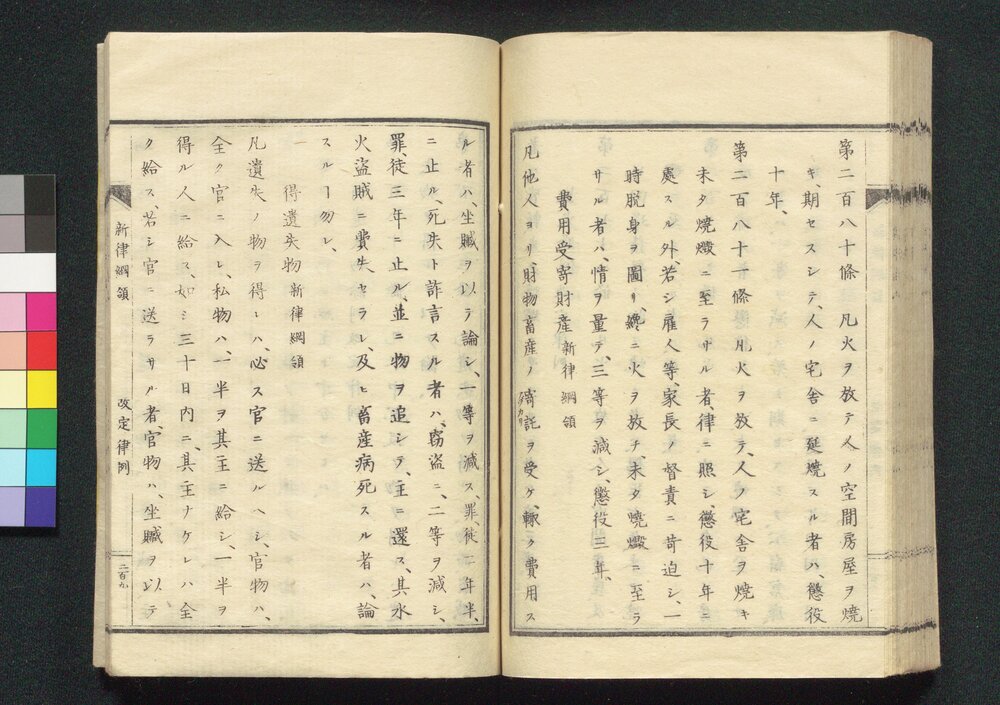 第二百八十條 凡火ヲ放テ人ノ空閒房屋ヲ燒
キ、期セスシテ、人ノ宅舎ニ延燒スル者ハ、懲役
十年、
第二百八十一條 凡火ヲ放テ、人ノ宅舎ヲ燒キ
未タ燒燬ニ至ラサル者、律ニ照シ、懲役十年ニ
處スル外、若シ雇人等、家長ノ督責ニ苛迫シ、一
時脱身ヲ圖リ、纔ニ火ヲ放チ、未タ燒燬ニ至ラ
サル者ハ、情ヲ量テ、三等ヲ減シ、懲役三年、
費用受寄財産 新律綱領
凡他人ヨリ、財物畜産ノ寄託ヲ受ケ、輙ク費用ス
ル者ハ、坐贓ヲ以テ論シ、一等ヲ減ス、罪、徒二年半、
ニ止ル、死失ト詐言スル者ハ、竊盗ニ、二等ヲ減シ、
罪、徒三年ニ止ル、並ニ物ヲ追シテ、主ニ還ス、其水
火盗賊ニ費失セラレ、及ヒ畜産病死スル者ハ、論
スルヿ勿レ、
一 得遺失物 新律綱領
凡遺失ノ物ヲ得ハ、必ス官ニ送ルヘシ、官物ハ、
全ク官ニ入レ、私物ハ、一半ヲ其主ニ給シ、一半ヲ
得ル人ニ給ス、如シ三十日内ニ、其主ナケレハ全
ク給ス、若シ官ニ送ラサル者、官物ハ、坐贓ヲ以テ
新律綱領 改定律例
二百九